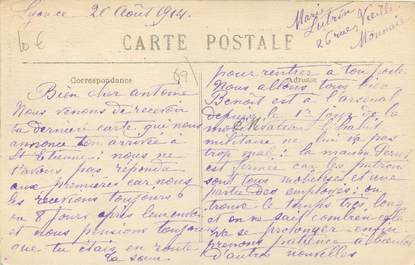 Lyance 20 Août 1914.
Marie
Lutrin
26 rue Vieille
Monnaie
10 €
CARTE POSTALE
Correspondance
89
Adresse
Bien cher antoine
Nous venons de recevoir
ta dernière carte, que nous
annonce ton arrivée à
St Etienne : nous ne
t'avons pas répondu
aux premières car nous
les recevions toujours
ou 8 jours après leur envoi
et nous pensions toujours
que tu étais en route
Ta sœur
pour rentrer à ton poste.
Nous allons tous bien
Benoit est à l'arsenal
depuis le 1er jour de la
mobilisation, l'habit
militaire ne lui va pas
trop mal : la maison
est fermée car les patrons
sont tous mobilisés et une
partie des employés : on
trouve le temps très long
et on ne sait combien cela
va se prolonger enfin
prenons patience à bientôt
d'autres nouvelles